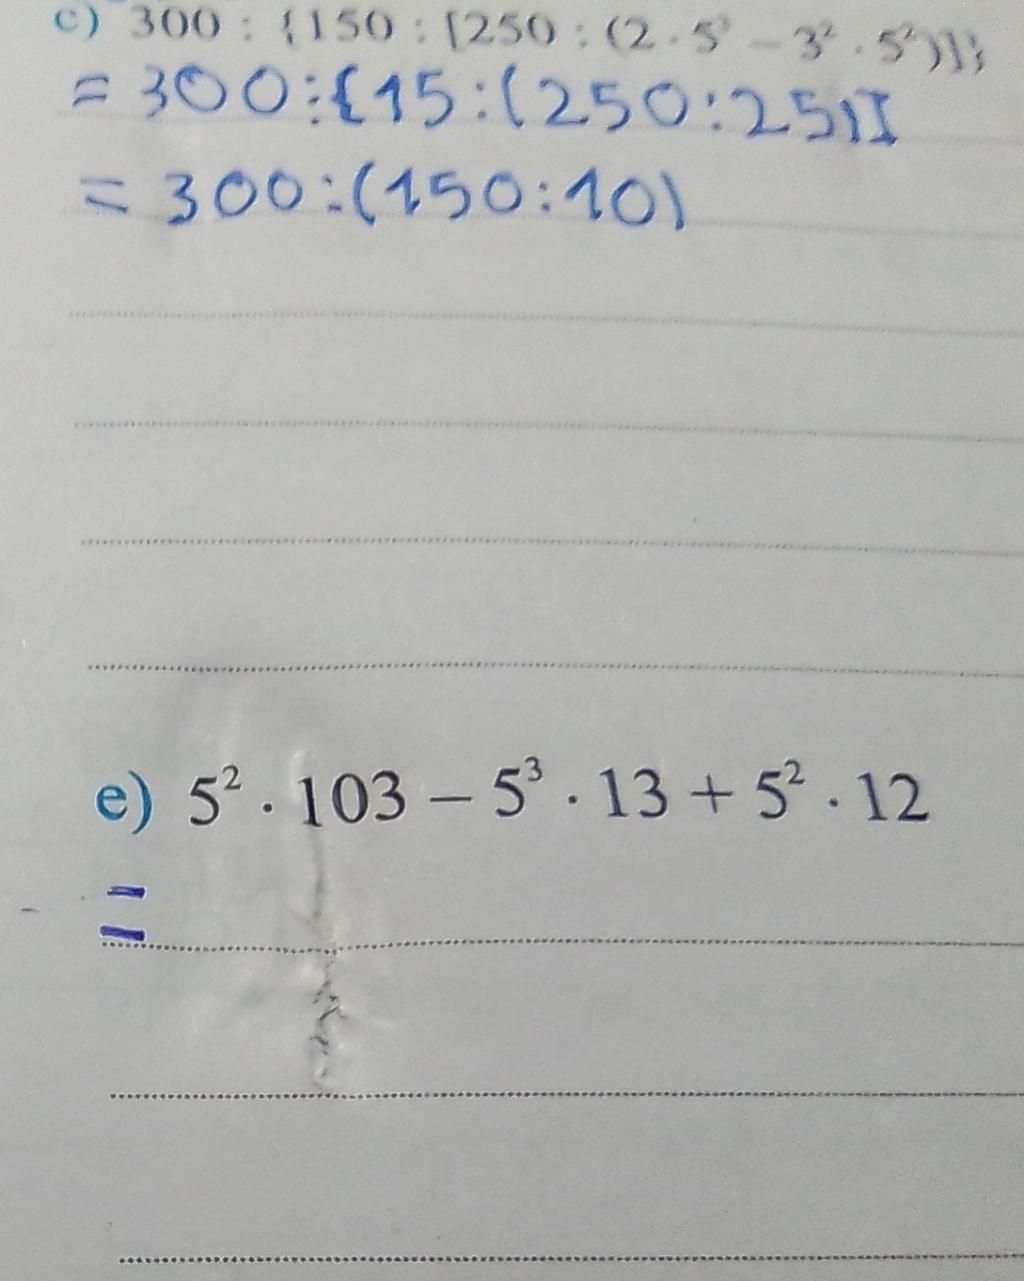 c) 300 : {150 : [250 : (2 · 5³ – 3² · 5²)]}
= 300:{15:(250:25)]
= 300:(150:10)
e) 5² · 103 – 5³ · 13 + 5² · 12
=